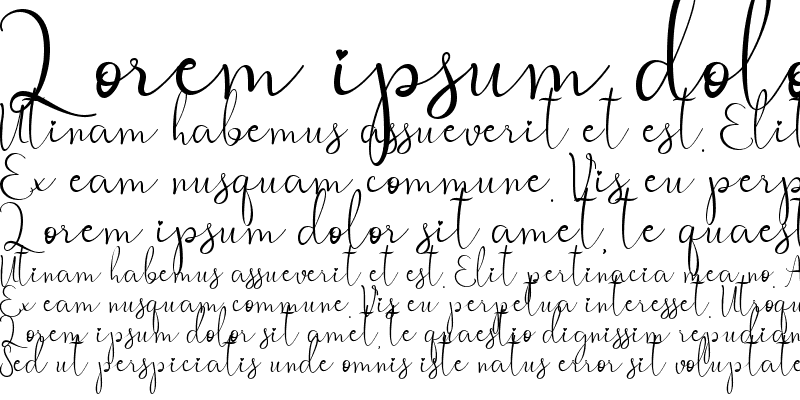 Lorem ipsum dolo
Utinam habemus assueverit et est. Elit
Ex eam nusquam commune. Vis eu perp
Lorem ipsum dolor sit amet, te quaest
Utinam habemus assueverit et est. Elit pertinacia mea no. A
Ex eam nusquam commune. Vis eu perpetua interesset. Utroqu
Lorem ipsum dolor sit amet, te quaestio dignissim repudian
Sed ut perspiciatis unde omnis iste natus error sit voluptate